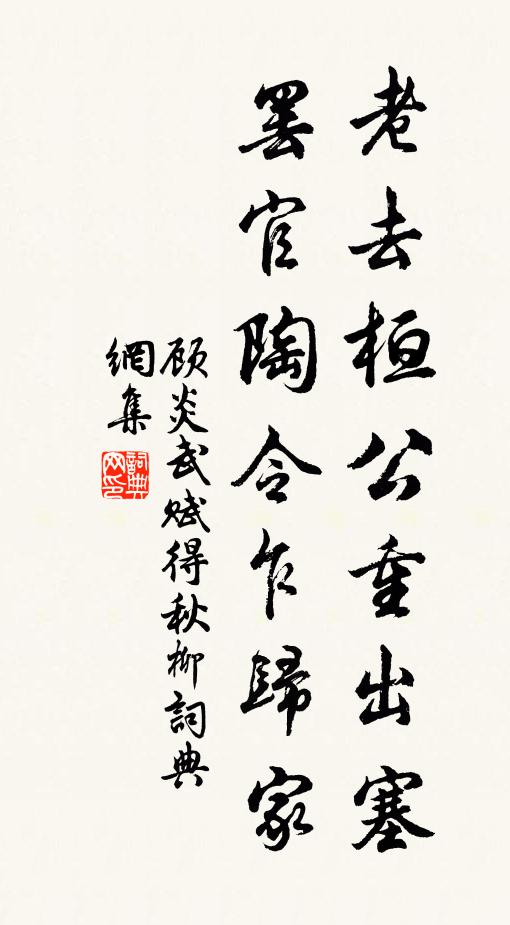 老去桓公重出塞
罢官陶令乍歸家
顾炎武赋得秋柳詞典
網集
詞典网印